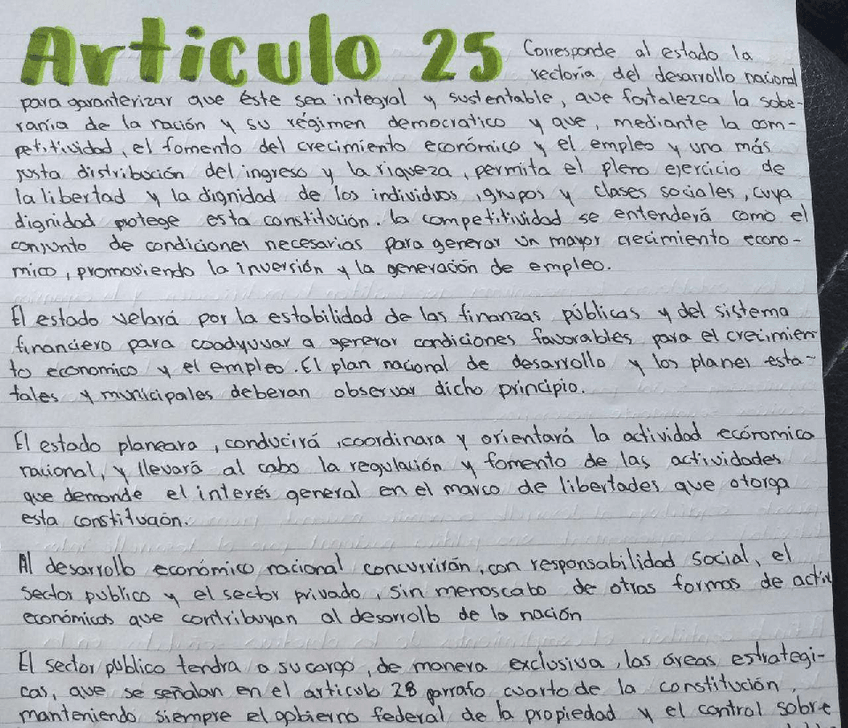 Articulo 25 Corresponde al estado la
rectoría del desarrollo nacional
para garanterizar que éste sea integral y sustentable, que fortalezca la sobe-
ranía de la nación y su régimen democratico y que, mediante la com-
petitividad, el fomento del crecimiento económico y el empleo y una más
justa distribución del ingreso y la riqueza, permita el pleno ejercicio de
la libertad y la dignidad de los individuos, grupos y clases sociales, cuya
dignidad protege esta constitución. la competitividad se entenderá como el
conjunto de condiciones necesarias para generar un mayor crecimiento econo-
mico, promoviendo la inversión y la generación de empleo.
El estado velará por la estabilidad de las finanzas públicas y del sistema
financiero para coadyuvar a generar condiciones favorables para el crecimien
to economico y el empleo. El plan nacional de desarrollo y los planes esta-
tales y municipales deberan observar dicho principio.
El estado planeara, conducirá, coordinara y orientará la actividad económica
nacional, y llevará al cabo la regulación y fomento de las actividades
que demande el interés general en el marco de libertades que otorga
esta constitución.
Al desarrollo económico nacional concurrirán, con responsabilidad social, el
sector publico y el sector privado, sin menoscabo de otras formas de activ
económicas que contribuyan al desarrollo de la nación
El sector publico tendra a su cargo, de manera exclusiva, las áreas estrategi-
cas, que se señalan en el articulo 28 parrafo cuarto de la constitución,
manteniendo siempre el gobierno federal de la propiedad y el control sobre